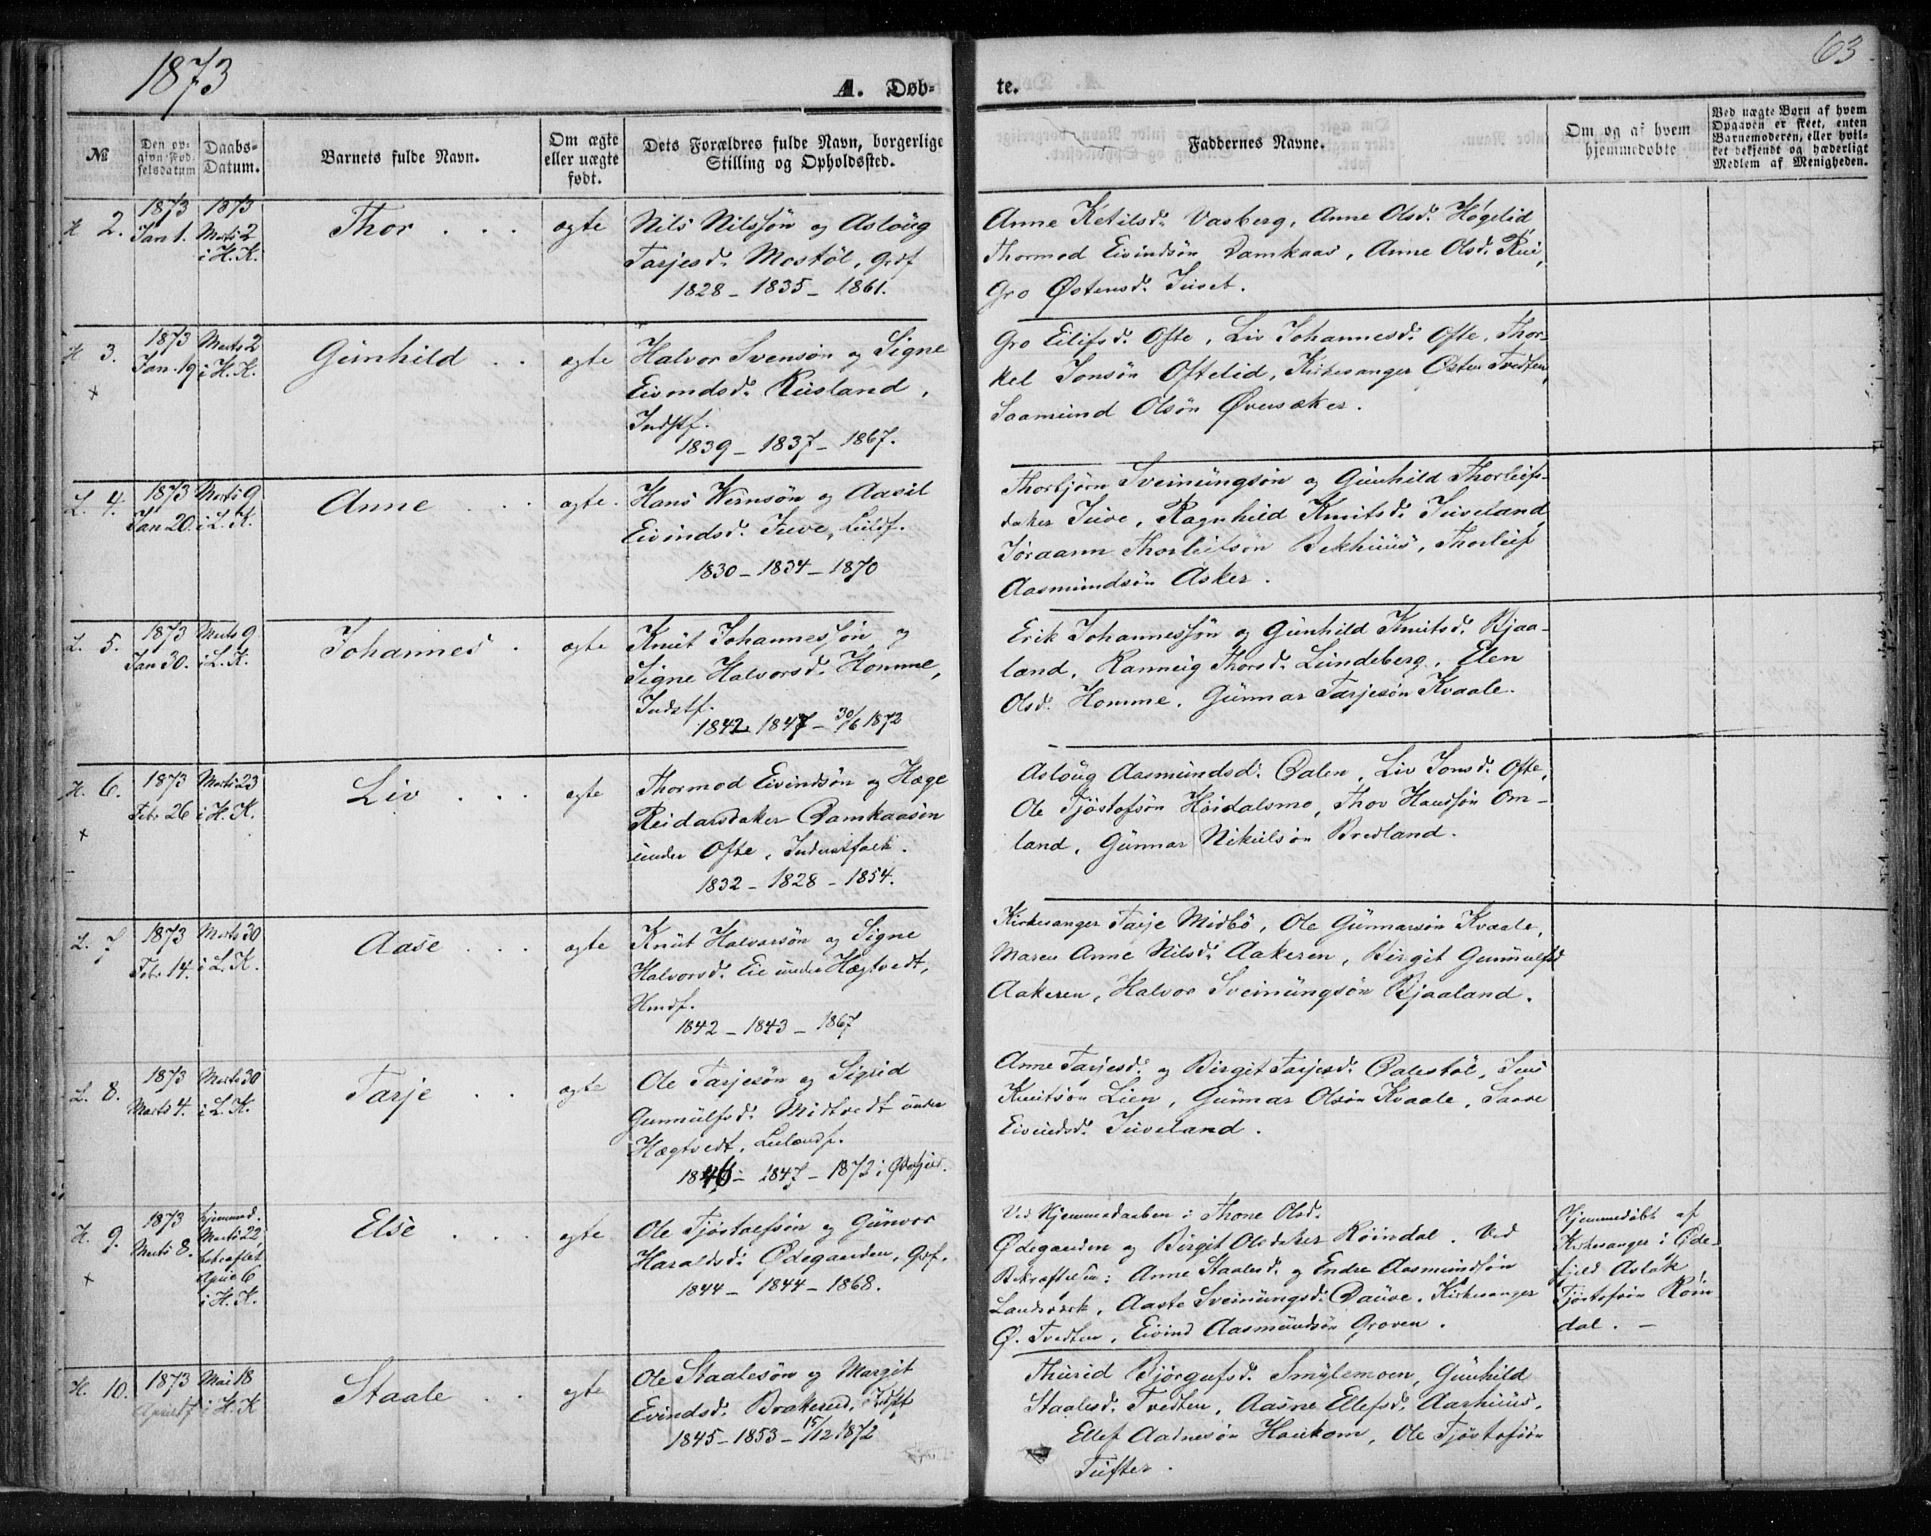 1873
A. Døb-
te.
63
№
Den op-
givne Fød-
selsdatum
Daabs-
Datum.
Barnets fulde Navn.
Om ægte
eller uægte
født.
Dets Forældres fulde Navn, borgerlige
Stilling og Opholdssted.
Faddernes Navne.
Om og af hvem
hjemmedøbte
Ved uægte Børn af hvem
Opgaven er skeet, enten
Barnemoderen, eller hvil-
ket bekjendt og hæderligt
Medlem af Menigheden.
H 2.
1873
Jan 1.
1873
Marts 2
i H. K.
Thor
ægte
Nils Nilssøn og Asloüg
Tarjesd. Mostøl, Grdf
1828 - 1835 - 1861.
Anne Ketilsd. Vasberg, Anne Olsd. Høgelid
Thormod Eivindsøn Damkaas, Anne Olsd. Rui,
Gro Østensd. Juset.
H 3.
+
1873
Jan. 19
Marts 2
i H. K.
Günhild
ægte
Halvor Svensøn og Signe
Eivindsd. Rüsland,
Indstf.
1839 - 1837 - 1867.
Gro Eilifsd. Ofte, Liv Johannesd. Ofte, Thor-
kel Jonsøn Oftelid, Kirkesanger Østen Tvedten,
Saamünd Olsøn Øversaker.
L. 4.
1873
Jan 20.
Marts 9
i L. K.
Anne
ægte.
Hans Wernsøn og Aasil
Eivindsd. Juve, Leilf.
1830 - 1834 - 1870
Thorbjørn Sveinüngsøn og Günhild Thorleifs-
daker Juve, Ragnhild Knütsd. Jüveland,
Jøraann Thorleifsøn Bekhüüs, Thorleif
Aasmündsøn Asker.
L. 5.
1873
Jan 30.
Marts 9
i L. K.
Johannes
ægte
Knüt Johannessøn og
Signe Halvorsd. Homme,
Indstf.
1842 - 1847 - 30/6 1872
Erik Johannessøn og Günhild Knütsd. Bjaa-
land, Ranneig Thorsd. Lündeberg, Elen
Olsd. Homme, Günnar Tarjesøn Kvaale.
H. 6.
+
1873
Febr 26
Marts 23
i H. K.
Liv
ægte
Thormod Eivindsøn og Hæge
Reidarsdaker Damkaasen
ünder Ofte, Inderstfolk.
1832 - 1828 - 1854.
Asloüg Aasmündsd. Dalen, Liv Jonsd. Ofte,
Ole Tjøstofsøn Høidalsmo, Thor Hanssøn Om-
land, Günnar Nikülsøn Bredland.
L. 7
1873
Febr 14.
Marts 30
i L. K.
Aase
ægte
Knüt Halvorsøn og Signe
Halvorsd. Eie ünder Hægtvedt,
Hmdf.
1842 - 1843 - 1867
Kirkesanger Tarje Midbø, Ole Günnarsøn Kvaale,
Maren Anne Nilsd. Aakeren, Birgit Gunnülfsd
Aakeren, Halvor Sveinüngsøn Bjaaland.
L. 8.
1873
Marts 4.
Marts 30
i L. K.
Tarje
ægte
Ole Tarjesøn og Sigrid
Gunnülfsd. Midtvedt ünder
Hægtvedt, Leilændf.
1846 - 1847 - 1872 i Ødefjeld.
Anne Tarjesd. og Birgit Tarjesd. Dalestøl, Jens
Knütsøn Lien, Günnar Olsøn Kvaale,
Eivindsd. Jüveland.
H. 9.
+
1873
Marts 8.
hjemmed.
Marts 22,
bekræftet
April 6
i H. K.
Else
ægte
Ole Tjøstolfsøn og Günvor
Haraldsd. Ødegaarden, Grdf.
1844 - 1844 - 1868.
Ved Hjemmedaaben: Thone Olsd.
Ødegaarden og Birgit Olsdaker Røimdal. Ved
Bekræftelsen: Anne Staalesd. og Endre Aasmündsøn
Landsverk, Aaste Sveinüngsd. Daüve, Kirkesanger
Ø. Tvedten, Eivind Aasmündsøn Groven.
Hjemmedøbt af
Kirkesanger i Øde-
fjeld Aslak
Tjøstofsøn Røim
dal. —
H. 10.
1873
April 7
Mai 18
i H. K
Staale
ægte
Ole Staalesøn og Margit
Evindsd. Brakerud, Indstf.
1845 - 1853 - 15/12 1872
Thürid Bjørgufsd. Smylemoen, Günhild
Staalesd. Tvedten, Aasne Ellefsd. Aarhüüs,
Ellef Aadnesøn Haukom, Ole Tjøstofsøn
Tüfter.